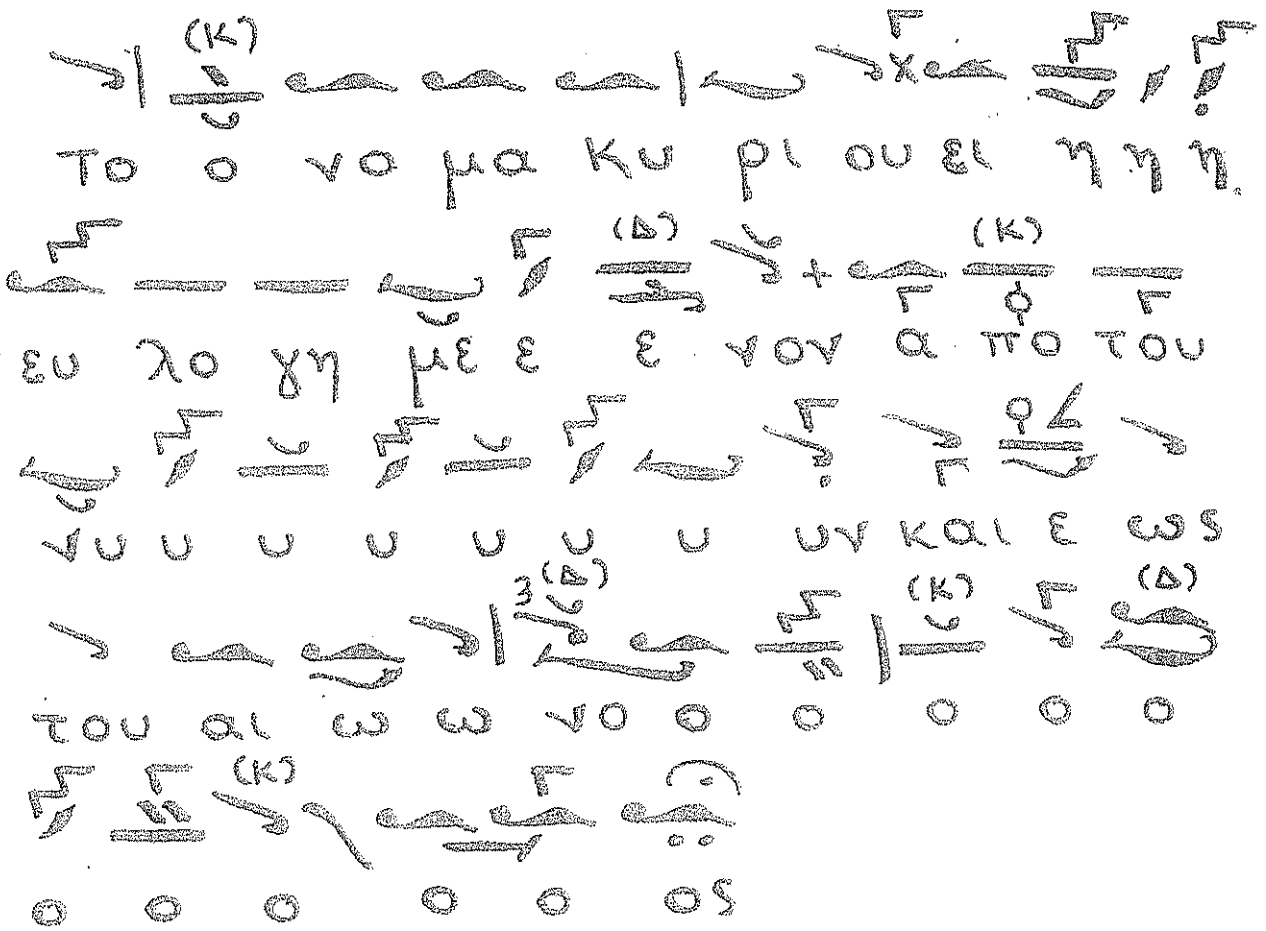 (Κ)
Το ο νο μα κυ ρι ου ει η η η
(Δ) (Κ)
ευ λο γη με ε ε νον α πο του
νυ υ υ υ υ υ υ υν και ε ως
(Δ) (Κ) (Δ)
του αι ω ω νο ο ο ο ο ο
(Κ)
ο ο ο ο ο ος